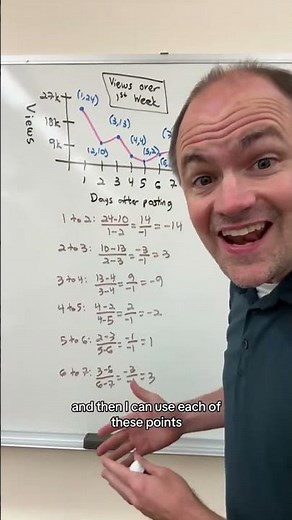 Views over
1st Week
27k
18k
9k
Views
(1,24)
(2,10)
(3,13)
(4,4)
(5,2)
1 2 3 4 5 6 7
Days after posting
1 to 2: 24-10/1-2 = 14/-1 = -14
2 to 3: 10-13/2-3 = -3/-1 = 3
3 to 4: 13-4/3-4 = 9/-1 = -9
4 to 5: 4-2/4-5 = 2/-1 = -2
5 to 6: 2-3/5-6 = -1/-1 = 1
6 to 7: 3-6/6-7 = -3/-1 = 3
and then I can use each of
these points